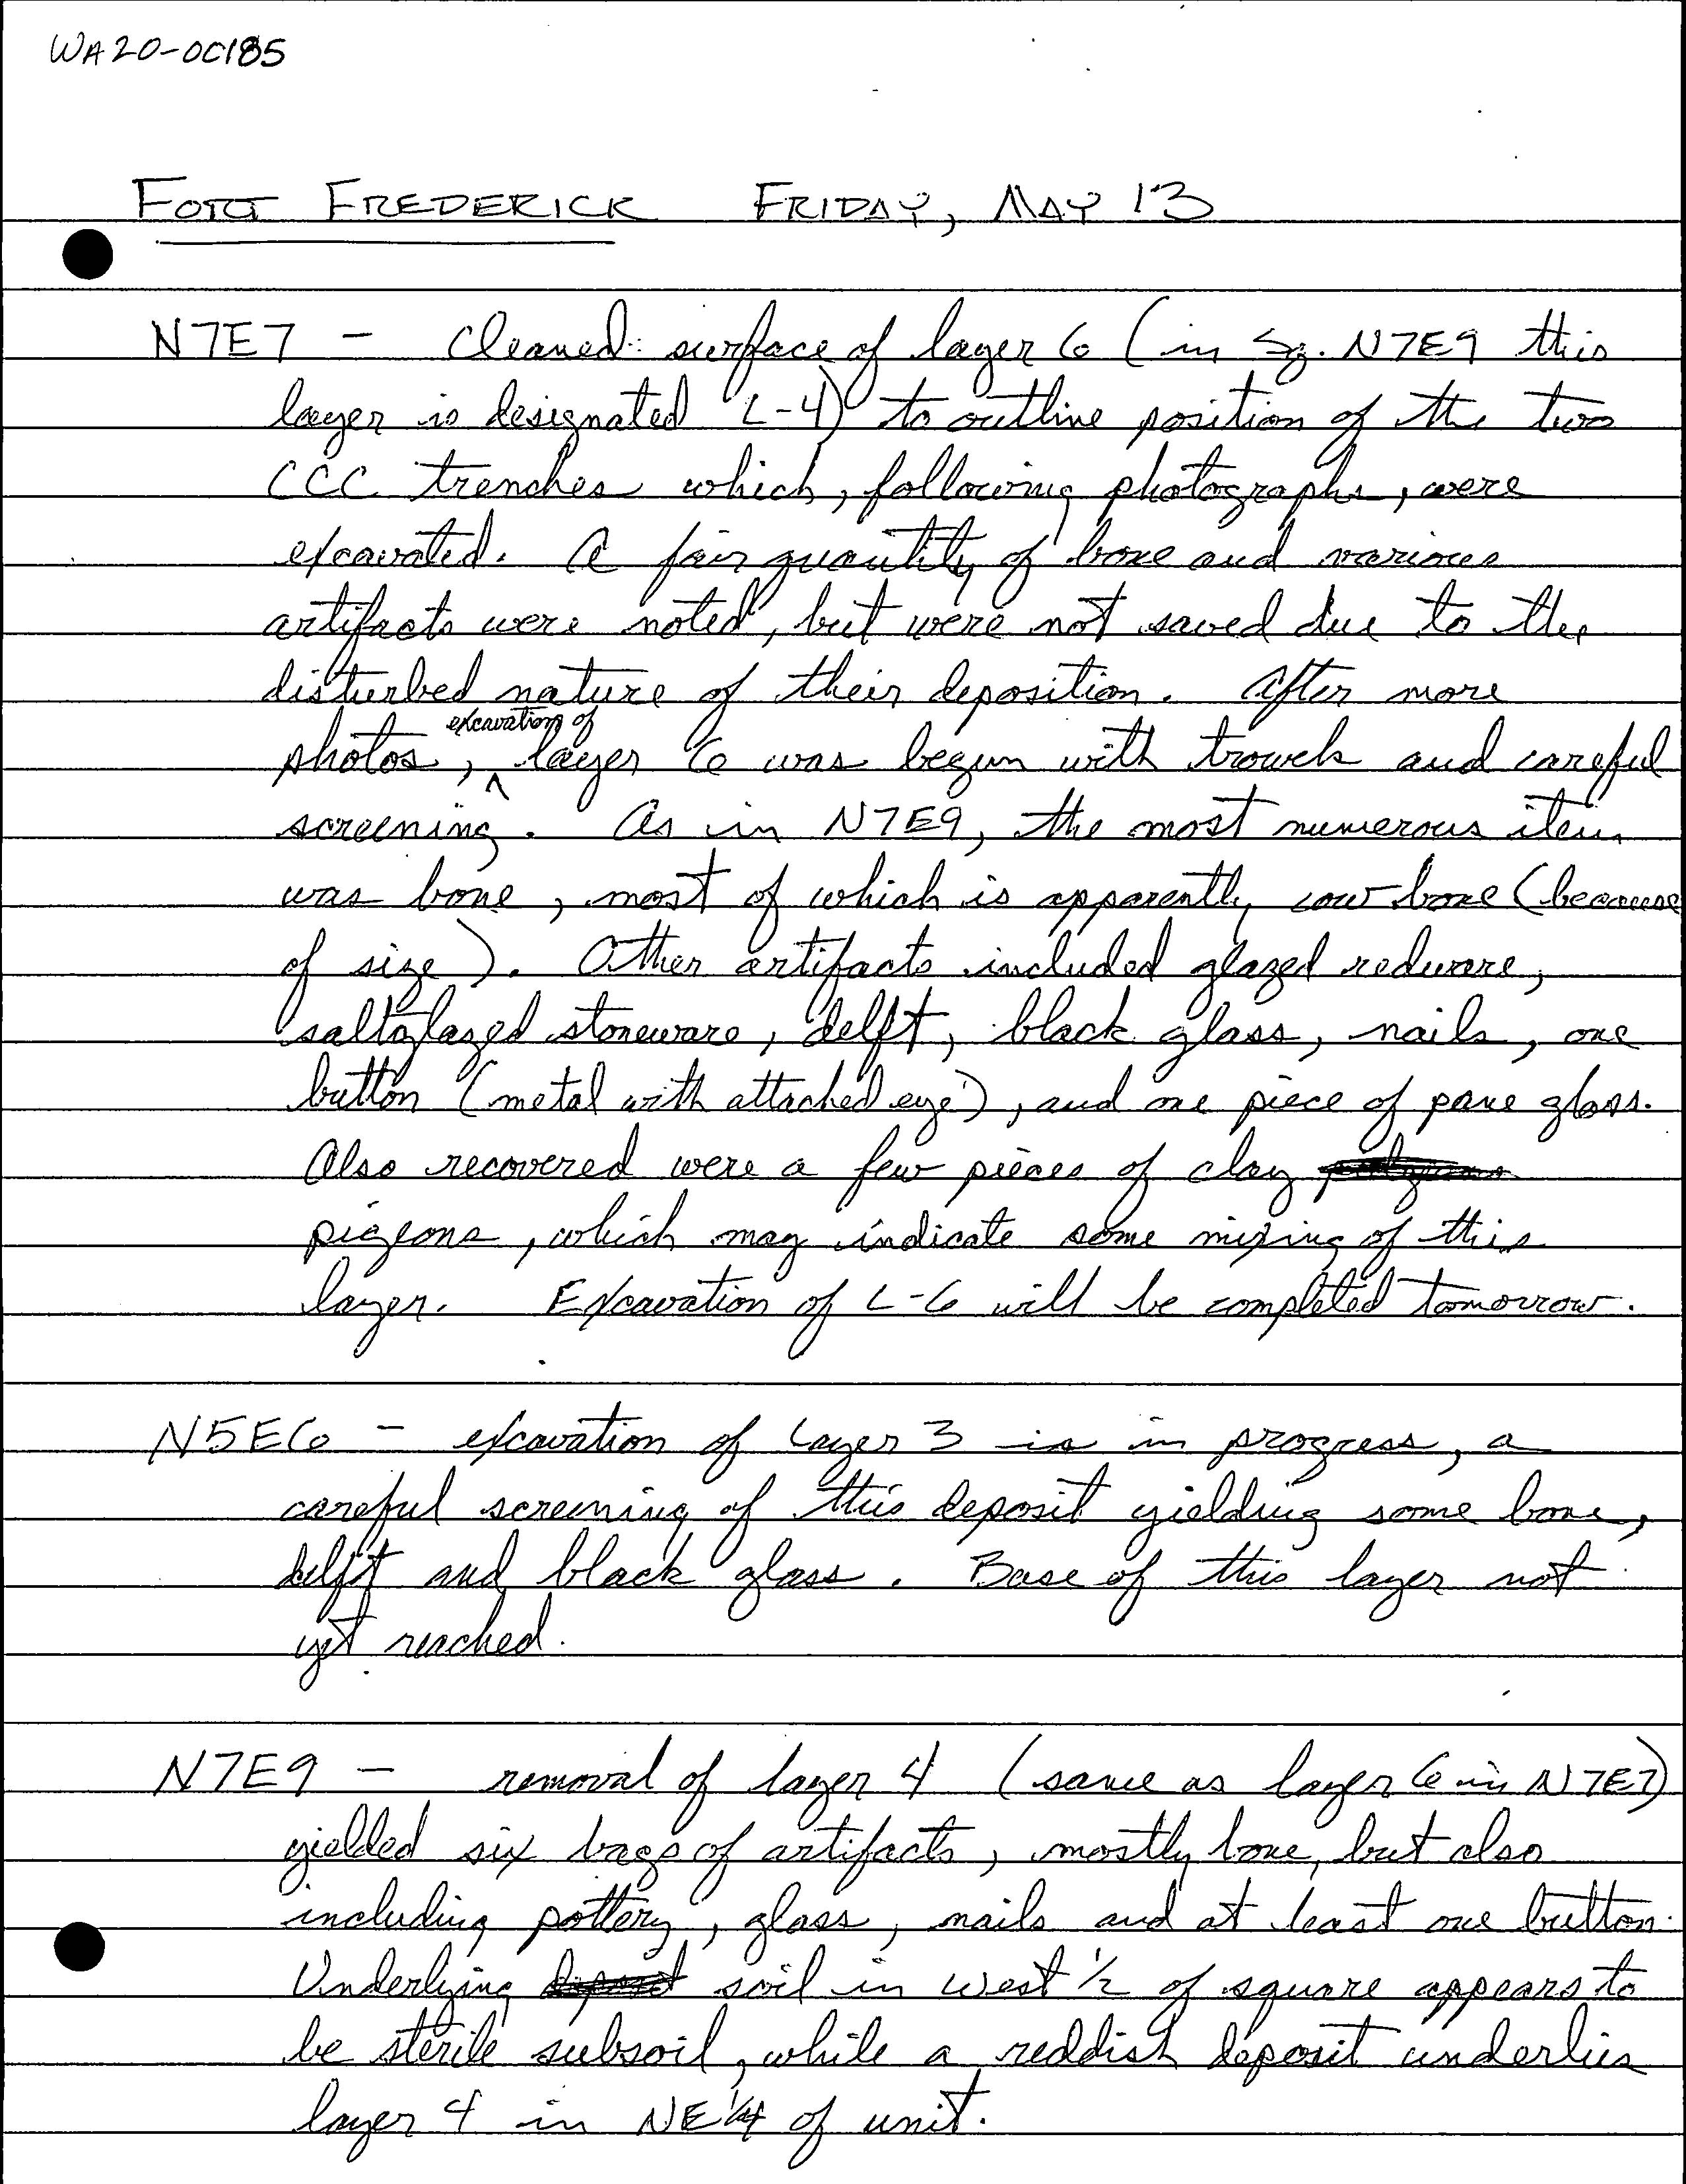 WA20-OC185
FORT FREDERICK FRIDAY, MAY 13
N7E7 - Cleaned surface of layer 6 (in Sq. N7E9 this
layer is designated L-4) to outline position of the two
CCC trenches which, following photographs, were
excavated. A fair quantity of bone and various
artifacts were noted, but were not saved due to the
disturbed nature of their deposition. After more
photos, excavation of layer 6 was begun with trowels and careful
screening. As in N7E9, the most numerous item
was bone, most of which is apparently cow bone (because
of size). Other artifacts included glazed redware,
saltglazed stoneware, delft, black glass, nails, one
button (metal with attached eye), and one piece of pane glass.
Also recovered were a few pieces of clay
pigeons, which may indicate some mixing of this
layer. Excavation of L-6 will be completed tomorrow.
N5E6 - excavation of Layer 3 is in progress, a
careful screening of this deposit yielding some bone,
delft and black glass. Base of this layer not
yet reached.
N7E9 - removal of layer 4 (same as layer 6 in N7E7)
yielded six bags of artifacts, mostly bone, but also
including pottery, glass, nails and at least one button.
Underlying soil in west 1/2 of square appears to
be sterile subsoil, while a reddish deposit underlies
layer 4 in NE 1/4 of unit.